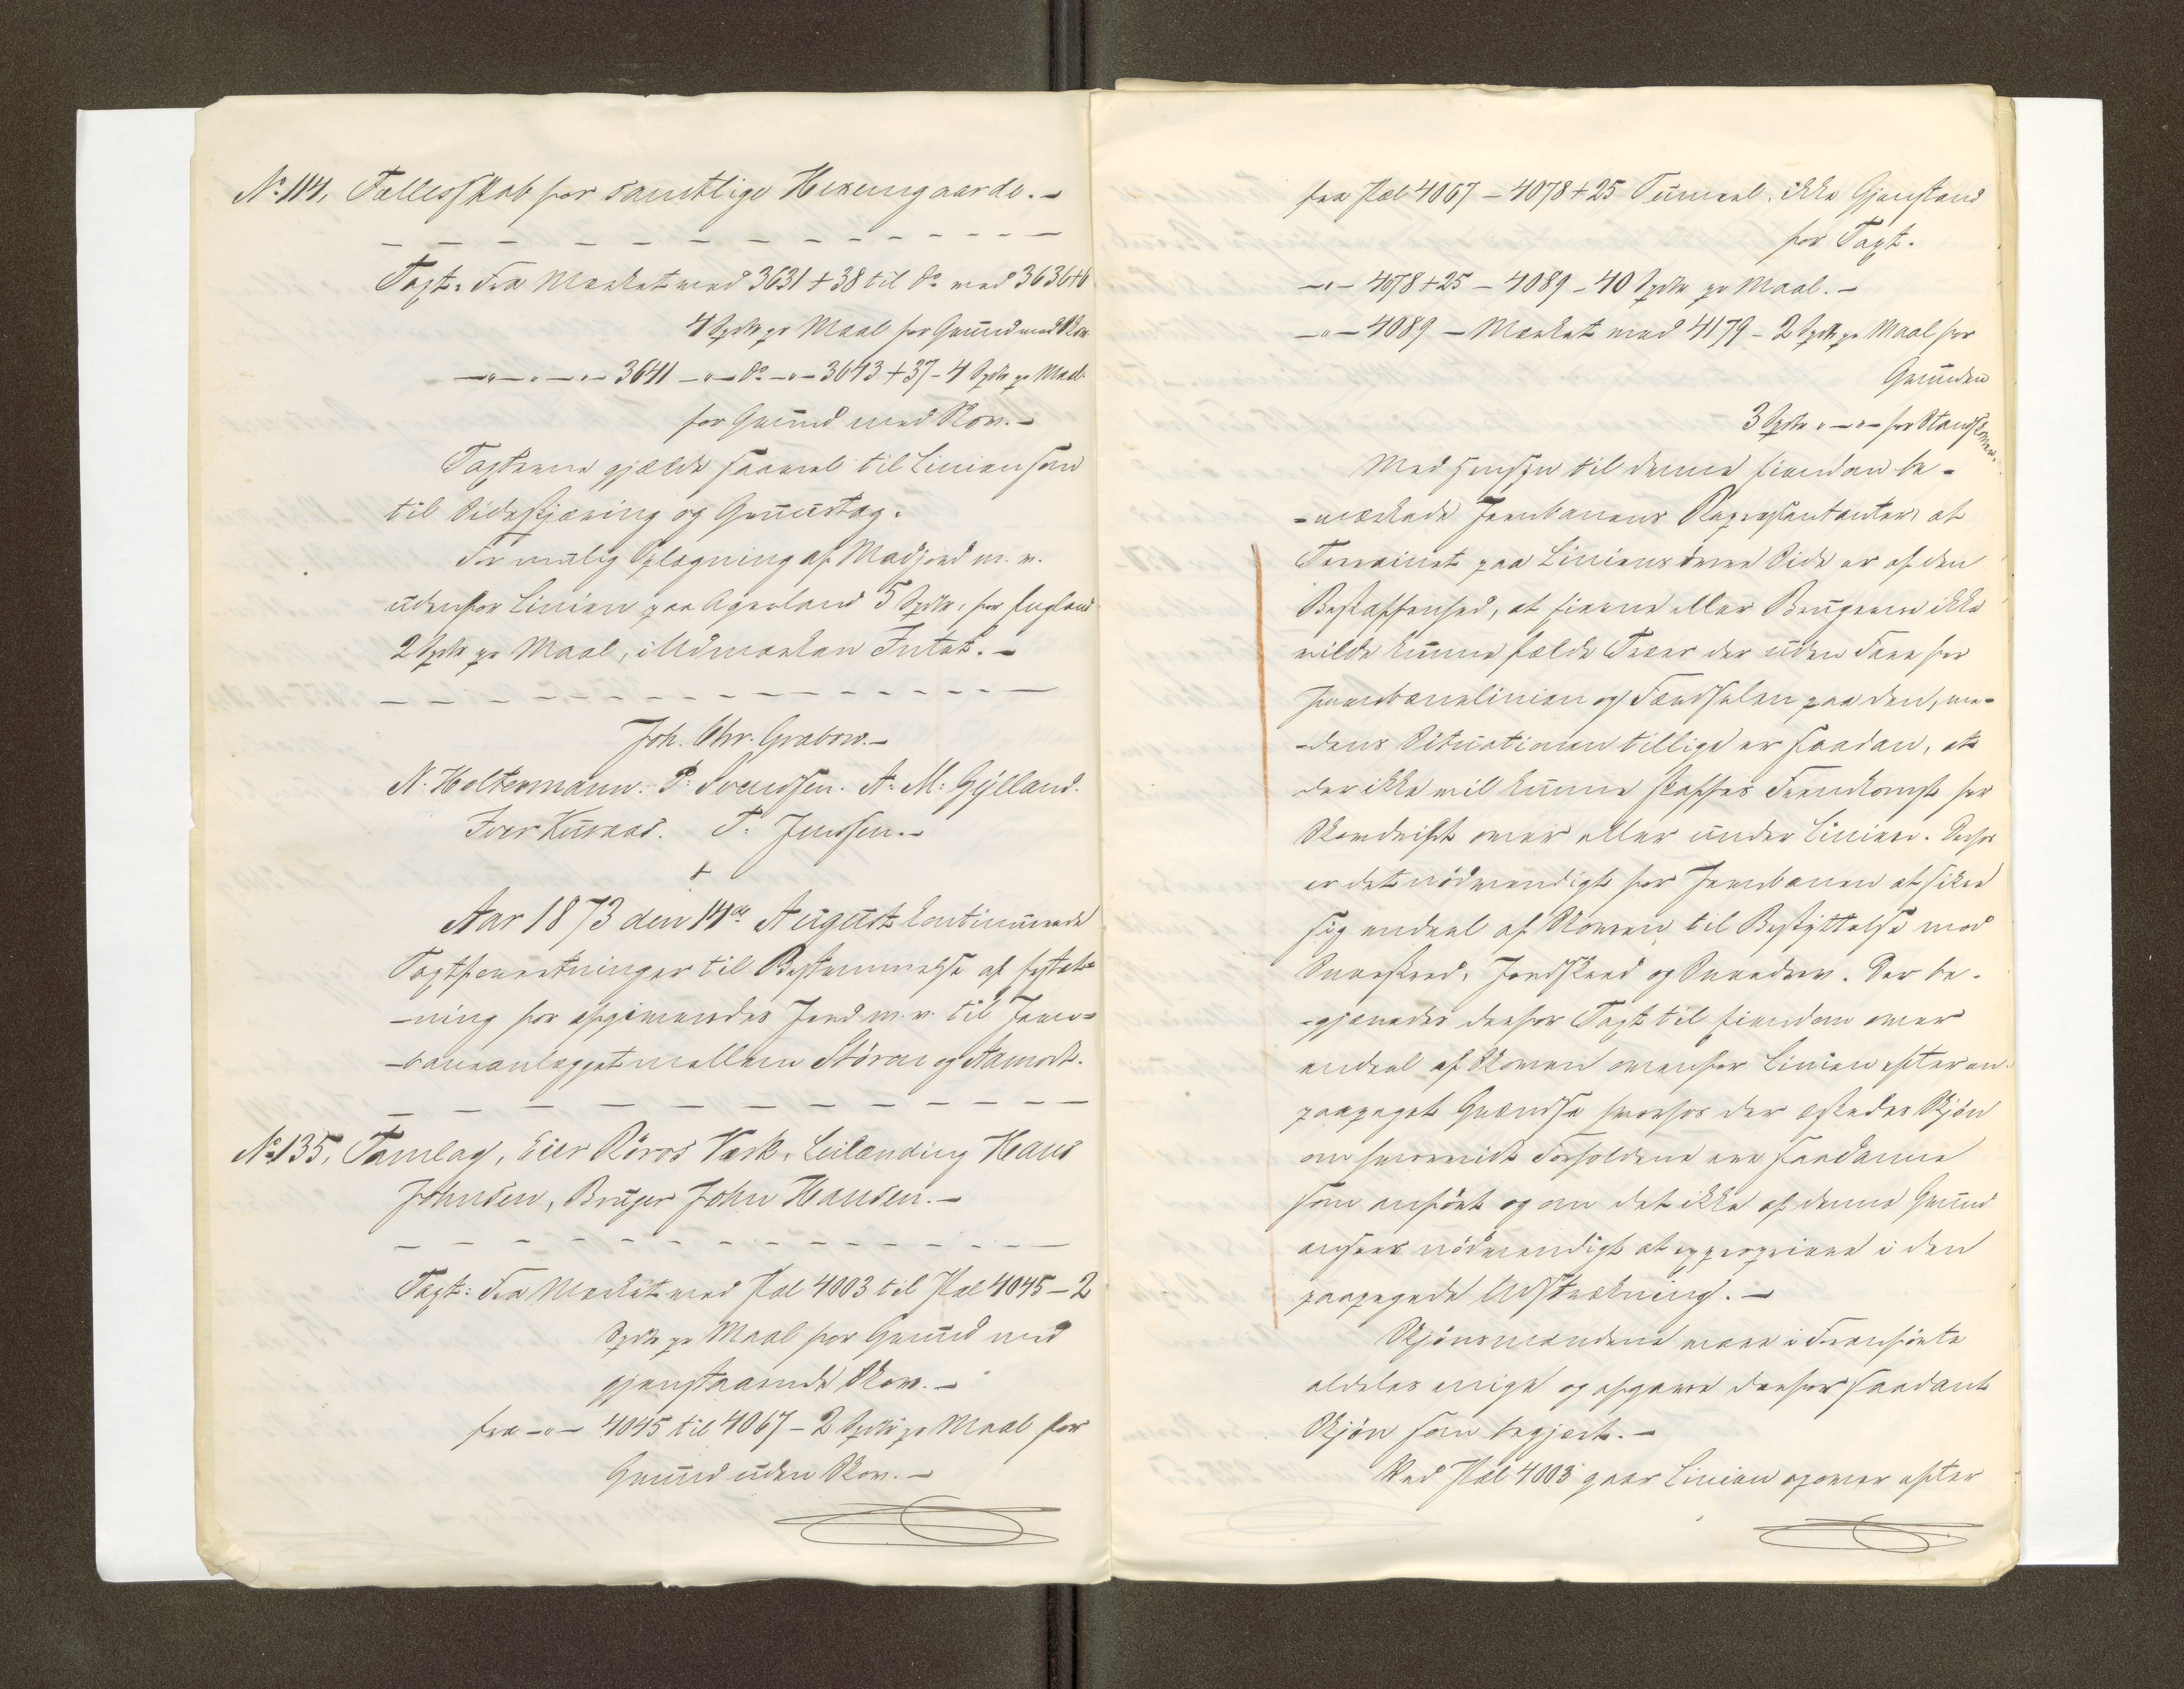 No 114, Fællesskab for samtlige Hexemgaarde. –
Taxt: Fra Mærket med 3631 + 38 til do med 3636+6
4 Spdlr pr Maal for Grund med Skov
—„—„—„— 3641 —„— do —„— 3643 + 37 – 4 Spdlr pr Maal
for Grund med Skov. –
Taxterne gjælde saavel til Linien som
til Sideskjæring og Gruustag.
For mulig Oplægning af Madjord m. v.
udenfor Linien paa Agerland 5 Spdlr, for England
2 Spdlr pr Maal, i Udmarken Intet. –
Joh. Chr. Grabow. –
N. Holtermann. P. Svendsen. A. M. Gylland.
Iver Kuraas. T. Jenssen. –
+
Aar 1873 den 14de August kontinuerede
Taxtforretninger til Bestemmelse af Erstat-
-ning for afgivendes Jord m. v. til Jern-
-baneanlægget mellem Støren og Aamodt.
No 135, Tamlag, Eier Röros Værk, Leilænding Hans
Johnsen, Bruger John Hansen. –
Taxt: Fra Mærket med Pæl 4003 til Pæl 4045 – 2
Spdlr pr Maal for Grund med
gjenstaaende Skov. –
fra —„— 4045 til 4067 – 2 Spdlr pr Maal for
Grund uden Skov. –
fra Pæl 4067 – 4078 + 25 Tunnel, ikke Gjenstand
for Taxt.
—„— 4078 + 25 – 4089 – 40 Spdlr pr Maal. –
—„— 4089 – Mærket med 4179 – 2 Spdlr pr Maal for
Grunden
3 Spdlr „—„— for Standskoven.
Med Hensyn til denne Eiendom be-
-mærkede Jernbanens Repræsentanter, at
Terrainet paa Liniens øvre Side er af den
Beskaffenhed, at Eierne eller Brugerne ikke
vilde kunne fælde Træer der uden Fare for
Jernbanelinien og Færdselen paa den, me-
-dens Situationen tillige er saadan, at
der ikke vil kunne skaffes Fremkomst for
Skovdrift over eller under Linien. Derfor
er det nödvendigt for Jernbanen at sikre
sig endeel af Skoven til Beskyttelse mod
Sneeskred, Jordskred og Sneedrev. Der be-
-gjæredes derfor Taxt til Eiendom over
endeel af Skoven ovenfor Linien efter en
paapeget Grændse hvorfor der æskedes Skjön
om hvorvidt Forholdene ere saadanne
som anført og om det ikke af denne Grund
ansees nödvendigt at expropriere i den
paapegede Udstrækning. –
Skjönsmændene vare i Fremförte
aldeles enige og afgave derfor saadant
Skjön som begjært. –
Ved Pæl 4003 gaar Linien opover efter